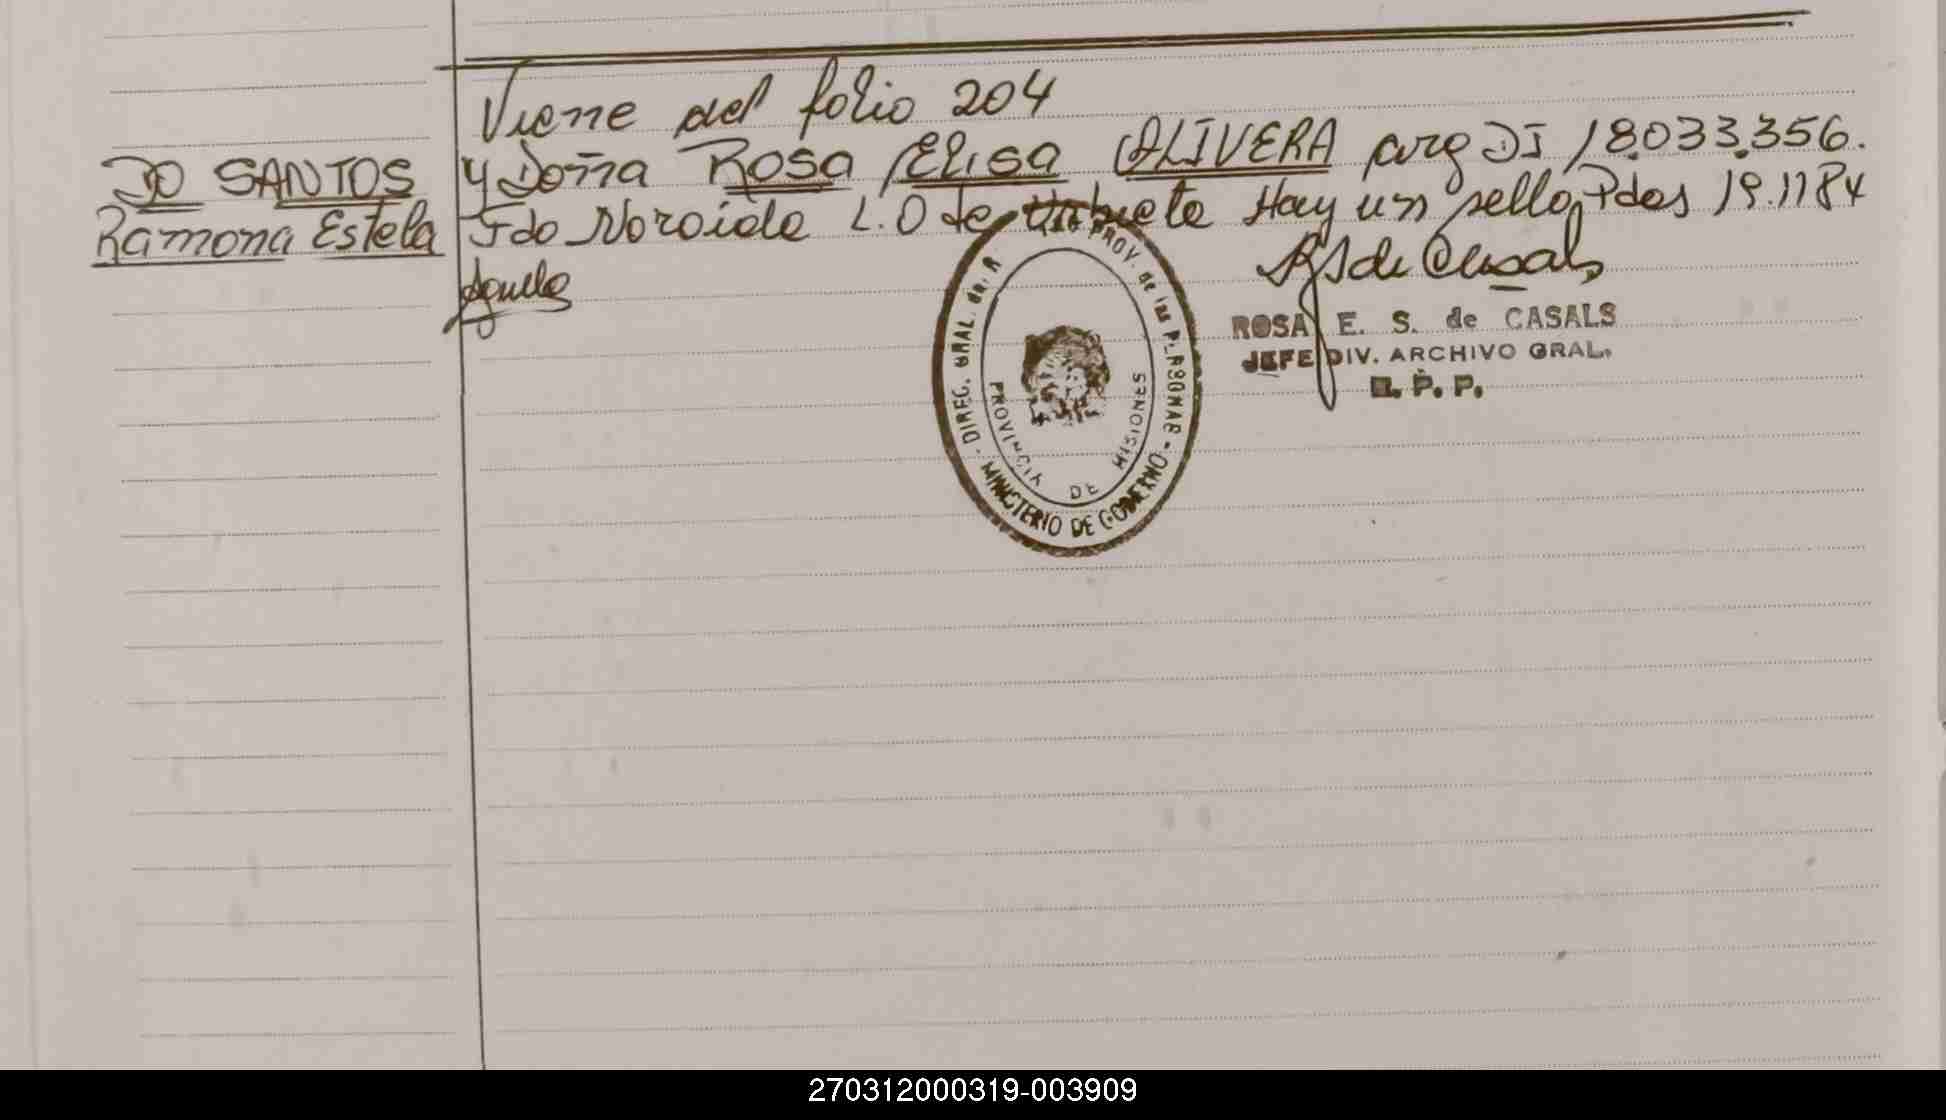 Viene del folio 204
DO SANTOS
Ramona Estela
y Doña ROSA ELISA OLIVERA arg DI 18.033.356.
Fdo L.O de Hay un sello Pdas 19.1184
RS de Casals
ROSA E. S. de CASALS
JEFE DIV. ARCHIVO GRAL.
R. P. P.
DIREC. GRAL. del R PROV. de las PERSONAS
MINISTERIO DE GOBIERNO
PROVINCIA DE MISIONES
270312000319-003909